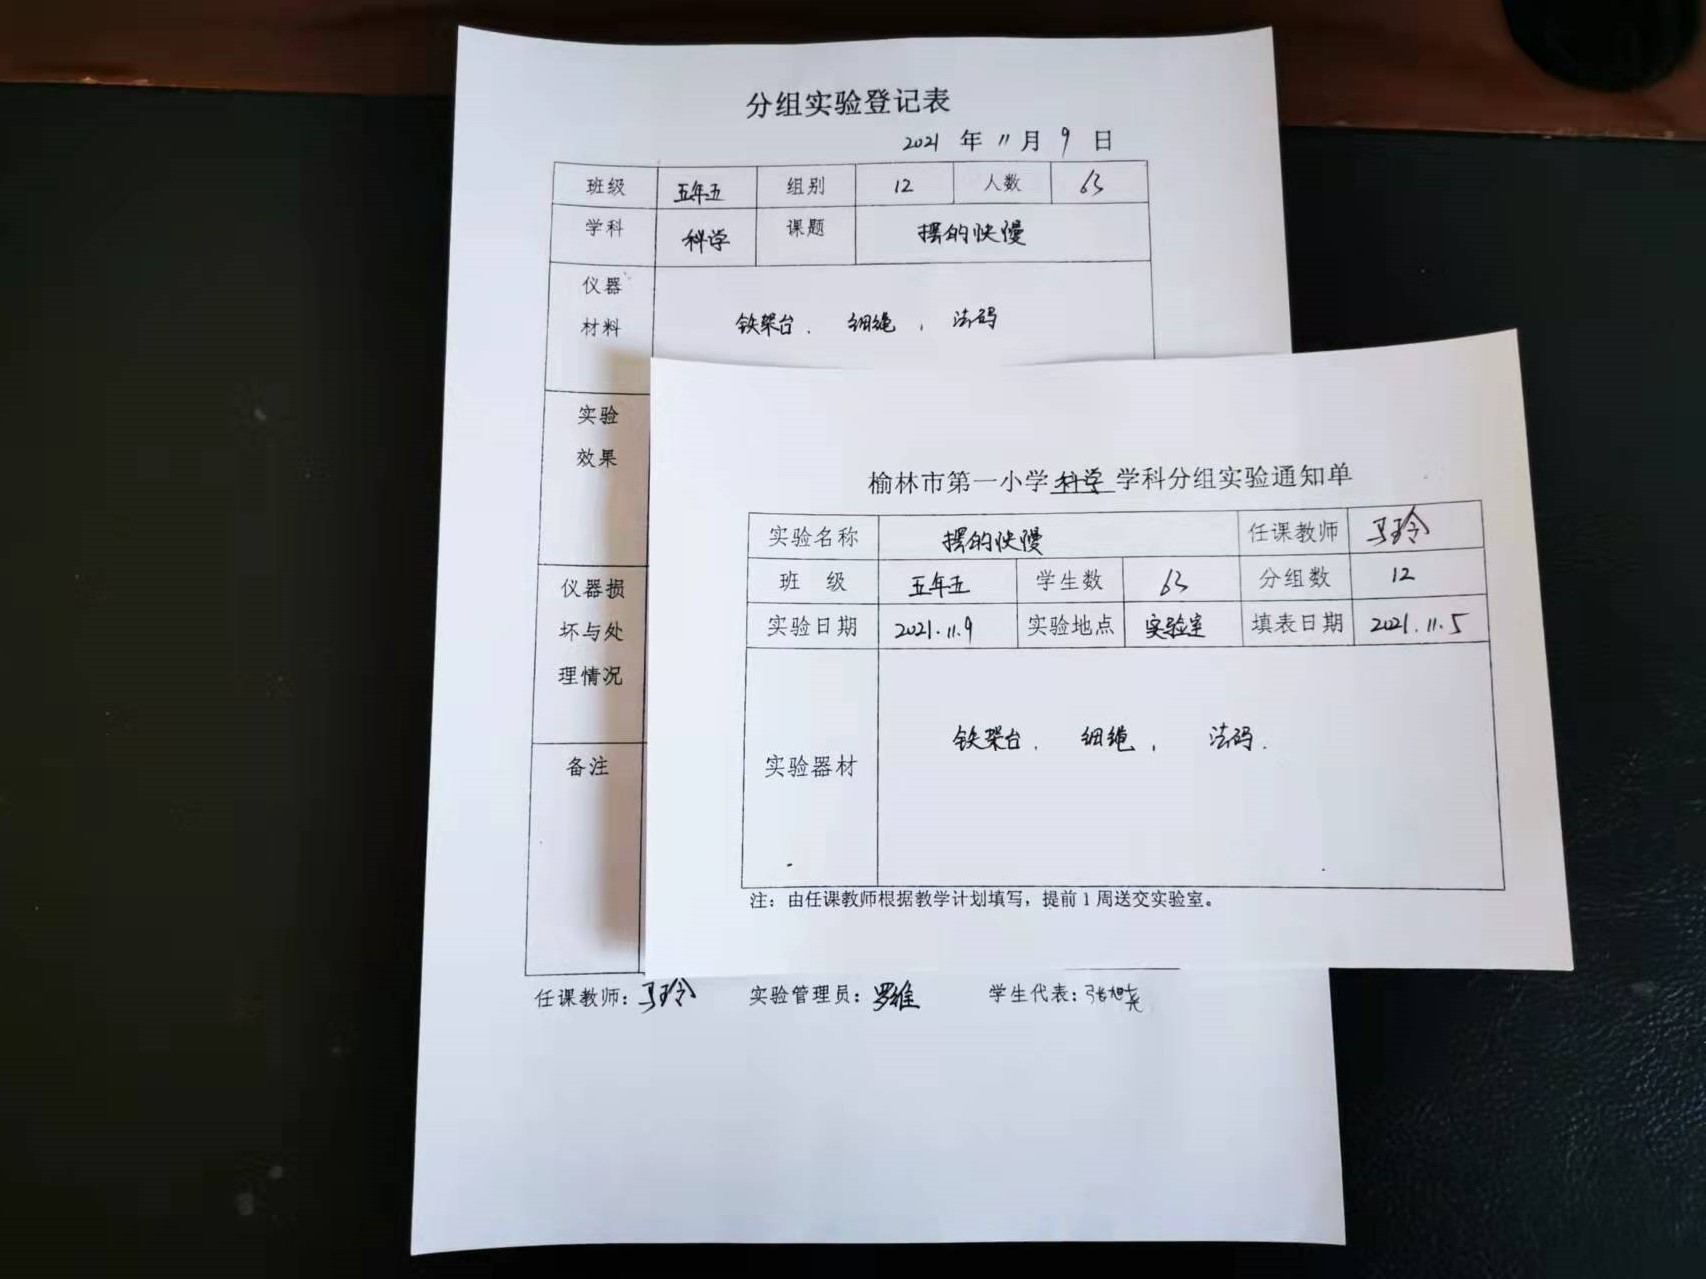 分组实验登记表
2021 年 11 月 9 日
班级 五年五 组别 12 人数 63
学科 科学 课题 摆的快慢
仪器
材料
铁架台、 细绳， 法码
实验
效果
仪器损
坏与处
理情况
备注
任课教师：马玲 实验管理员：罗维 学生代表：
榆林市第一小学科学学科分组实验通知单
实验名称 摆的快慢 任课教师 马玲
班 级 五年五 学生数 63 分组数 12
实验日期 2021.11.9 实验地点 实验室 填表日期 2021.11.5
实验器材 铁架台、 细绳， 法码.
注：由任课教师根据教学计划填写，提前1周送交实验室。